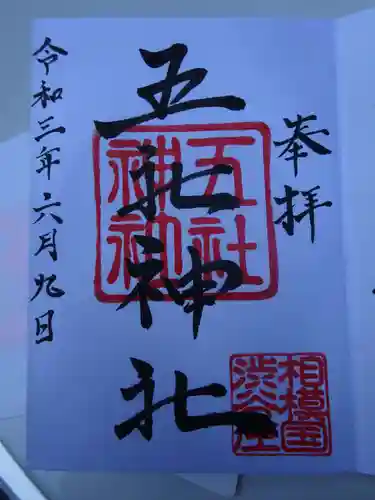 奉拝
五社神社
五社神社
相模国
渋谷庄
令和三年六月九日